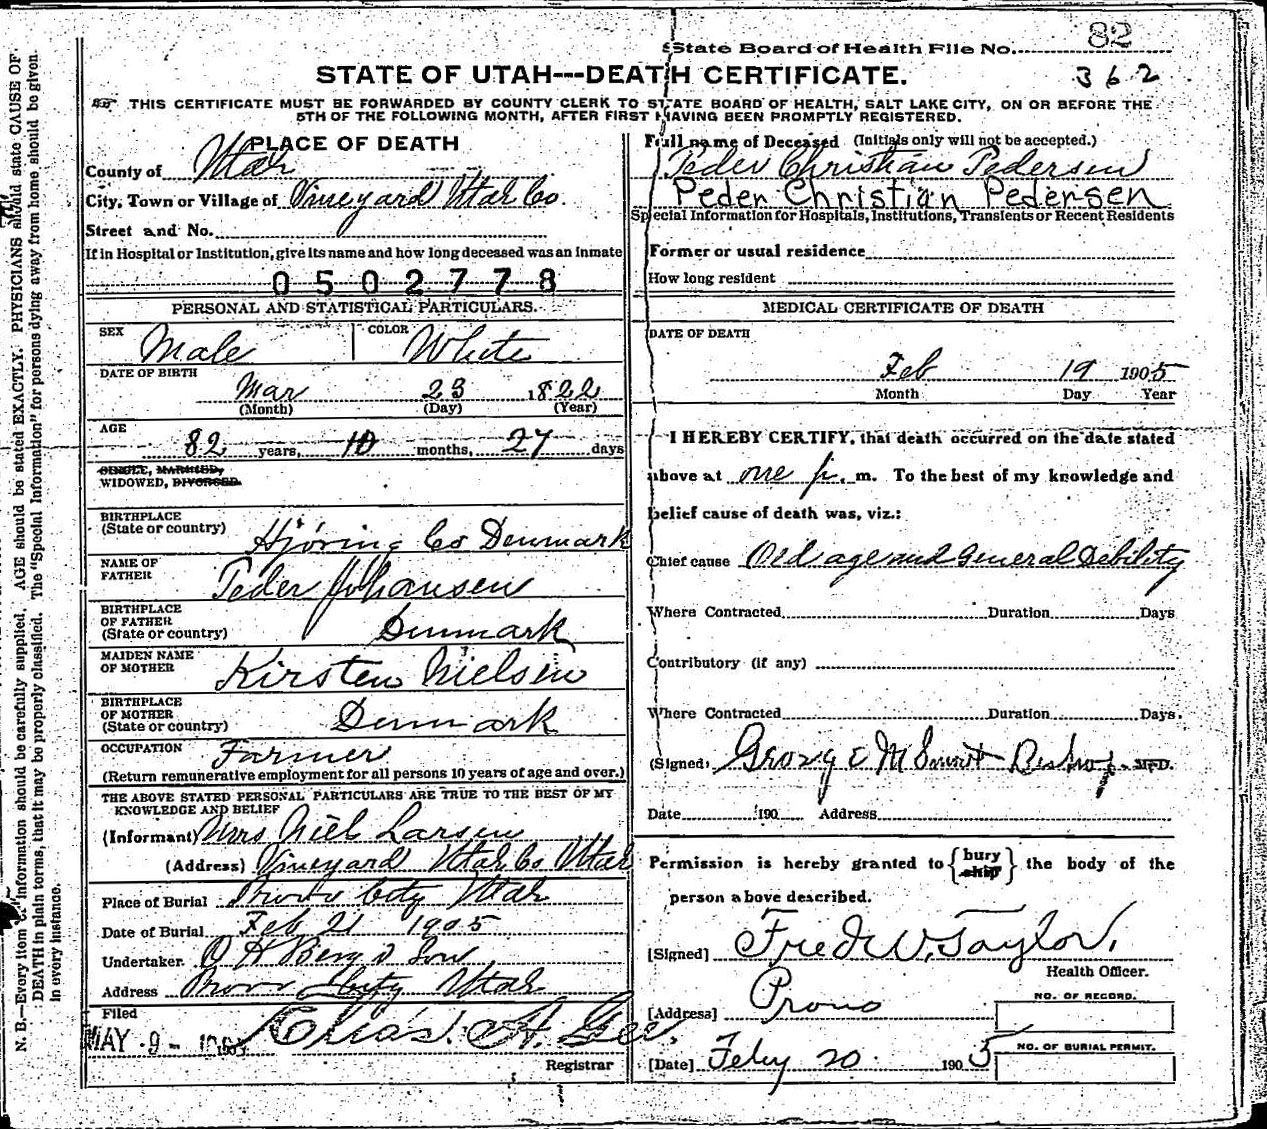 State Board of Health File No. 82
STATE OF UTAH---DEATH CERTIFICATE.
362
THIS CERTIFICATE MUST BE FORWARDED BY COUNTY CLERK TO STATE BOARD OF HEALTH, SALT LAKE CITY, ON OR BEFORE THE
5TH OF THE FOLLOWING MONTH, AFTER FIRST HAVING BEEN PROMPTLY REGISTERED.
PLACE OF DEATH
County of Utah
City, Town or Village of Vineyard Utah Co.
Street and No.
If in Hospital or Institution, give its name and how long deceased was an inmate
0502778
PERSONAL AND STATISTICAL PARTICULARS.
SEX Male COLOR White
DATE OF BIRTH
Mar 23 1822
(Month) (Day) (Year)
AGE
82 years, 10 months, 27 days
SINGLE, MARRIED,
WIDOWED, DIVORCED.
BIRTHPLACE
(State or country) Hjöring Co Denmark
NAME OF
FATHER Peder Johansen
BIRTHPLACE
OF FATHER
(State or country) Denmark
MAIDEN NAME
OF MOTHER Kirsten Nielsen
BIRTHPLACE
OF MOTHER
(State or country) Denmark
OCCUPATION Farmer
(Return remunerative employment for all persons 10 years of age and over.)
THE ABOVE STATED PERSONAL PARTICULARS ARE TRUE TO THE BEST OF MY
KNOWLEDGE AND BELIEF
(Informant) Mrs Niels Larsen
(Address) Vineyard Utah Co Utah
Place of Burial Provo City Utah
Date of Burial Feb 21 1905
Undertaker. O H Berg & Son
Address Provo City Utah
Filed
MAY -9- 1905 Chas. A. Gee.
Registrar
Full name of Deceased (Initials only will not be accepted.)
Peder Christian Pedersen
Peder Christian Pedersen
Special Information for Hospitals, Institutions, Transients or Recent Residents
Former or usual residence
How long resident
MEDICAL CERTIFICATE OF DEATH
DATE OF DEATH
Feb 19 1905
Month Day Year
I HEREBY CERTIFY, that death occurred on the date stated
above at one p. m. To the best of my knowledge and
belief cause of death was, viz.:
Chief cause Old age and General Debility
Where Contracted Duration Days
Contributory (if any)
Where Contracted Duration Days.
(Signed) George M Smoot Bishop. M.D.
Date 190 Address
Permission is hereby granted to {bury
ship} the body of the
person above described.
[Signed] Fred W. Taylor,
Health Officer.
[Address] Provo
NO. OF RECORD.
NO. OF BURIAL PERMIT.
[Date] Feby 20. 1905
N. B.—Every item of information should be carefully supplied. AGE should be stated EXACTLY. PHYSICIANS should state CAUSE OF
DEATH in plain terms, that it may be properly classified. The "Special Information" for persons dying away from home, should be given
in every instance.